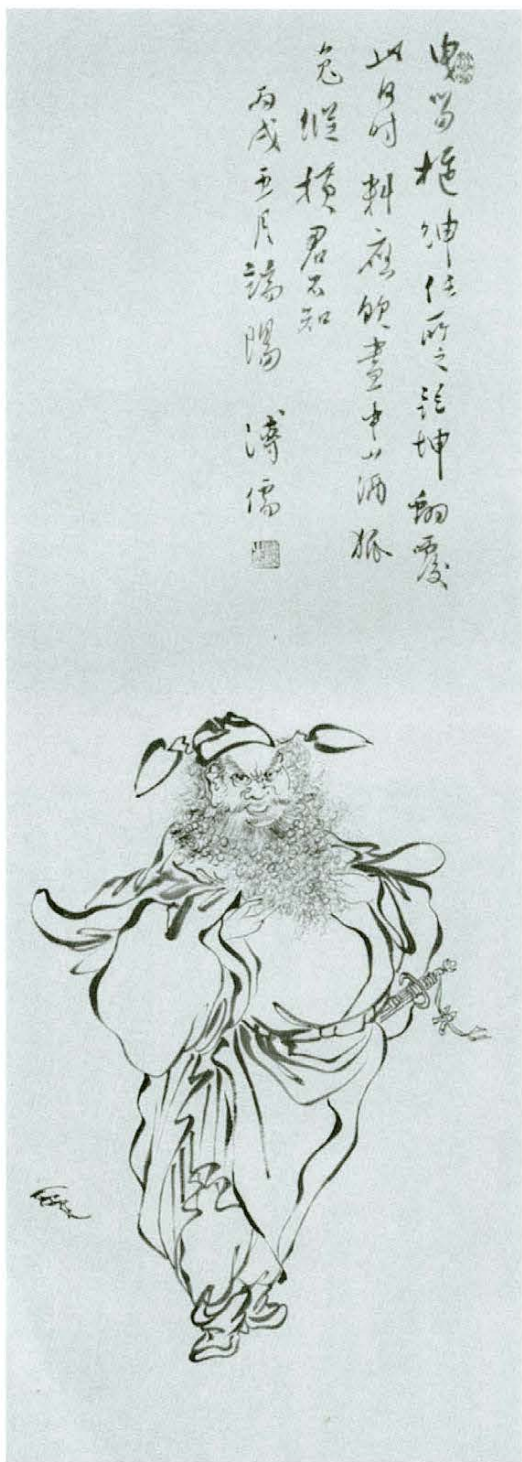 曳笏拖紳任所之乾坤翻覆
此何時料應飲盡中山酒狐
兔縱橫君不知
丙戌五月端陽 溥儒